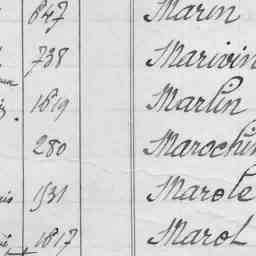 647 Marin
738 Marivin
1619 Marlin
280 Marochin
1531 Marole
1817 Marol